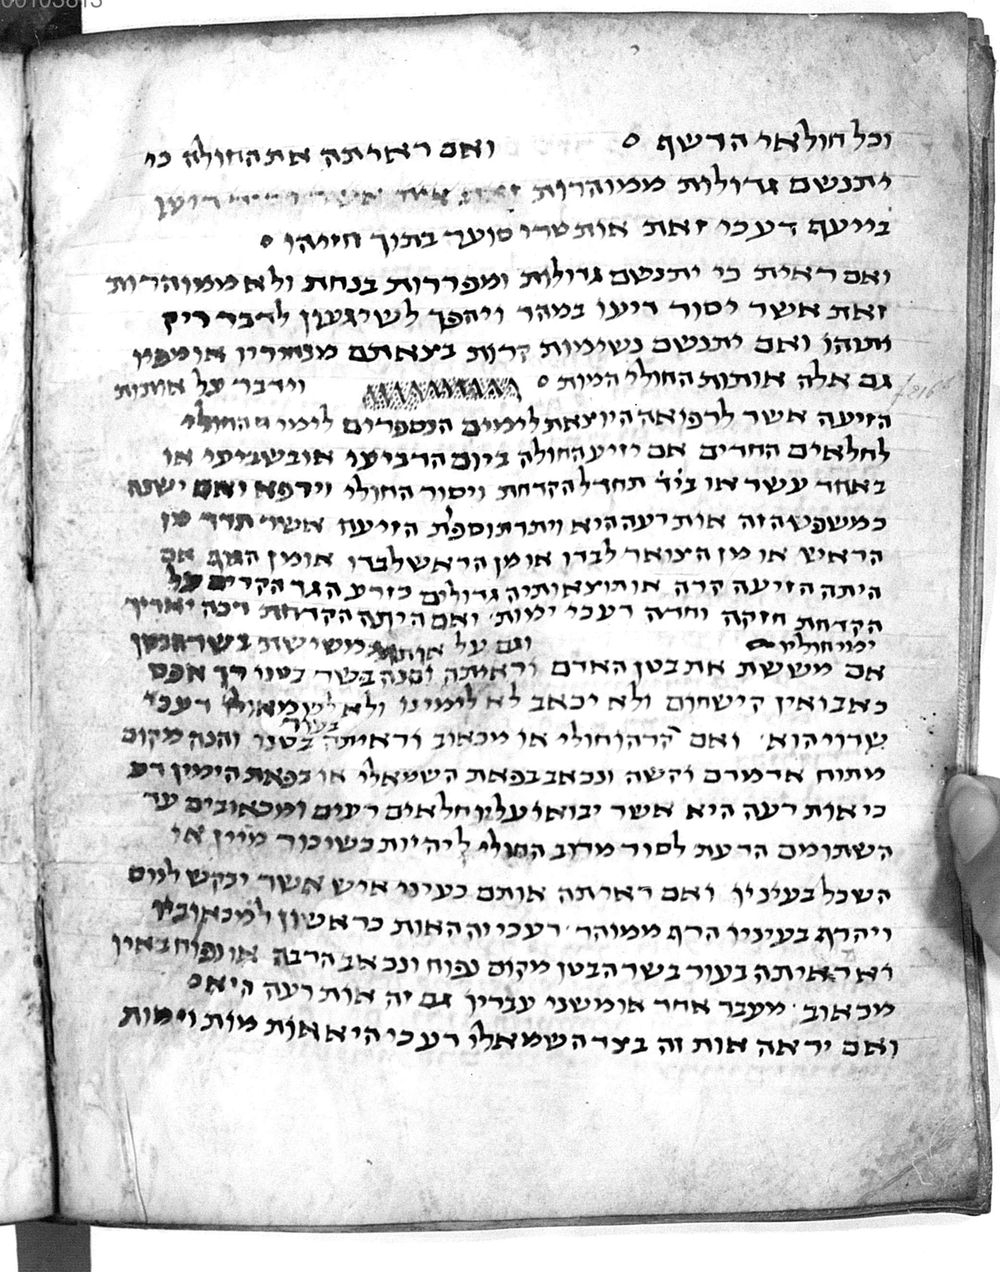 00103813
וכל חולאי הרשף ואם ראיתה את החולה כי
יתנשם גדולות ממוהרות
בייעף דע כי זאת אות סוער בתוך חזיהו
ואם ראית כי יתנשם גדולות ומפררות בנחת ולא ממוהרות
זאת אשר יסור ריעו במהר ויהפך לשיגעון לדבר ריק
ותוהו ואם יתנשם נשימות קרות בצאתם מנחיריו או מפיו
גם אלה אותות החולי המות וידבר על אותות
הזיעה אשר לרפואה היוצאת לימים הנספרים לימי החולי
לחלאים החדים אם יזיע החולה ביום הרביעי או בשביעי או
באחד עשר או ביד תחדל הקדחת ויסור החולי וירפא ואם ישנה
כמשפט הזה אות רעה היא ויתר תוספת הזיעה אשר תרד מן
הראש או מן הצואר לבדו או מן הראש לבדו או מן הגוף אם
היתה הזיעה קרה או תוצאותיה גדולים כזרע הגד הקדים על
הקדחת חזקה וחדה דע כי ימות ואם היתה הקדחת רכה יאריך
ימי חוליו וגם על אותות משישת בשר הבטן
אם מששת את בטן האדם וראיתה וסנה בשר בטנו רך אפס
כאב ואין קישחום ולא יכאב לא לימינו ולא לשמאולו דע כי
שדוי הוא ואם קרהו חולי או מכאוב וראיתה בעור בטנו והנה מקום
מתוח אדמדם וקשה ונכאב בפאת השמאלי או בפאת הימין דע
כי אות רעה היא אשר יבואו עליו חלאים רעים ומכאובים עד
השתומם הדעת לסור מרוב החולי ליהיות כשיכור מיין או
השכל בעיניו ואם ראיתה אותם כעיני איש אשר יבקש לנוס
ויהרף בעיניו הרף ממוהר דע כי זה האות כראשון למכאוביו
ואם ראיתה בעור בשר הבטן מקום נפוח ונכאב הרבה או נפוח באין
מכאוב מעבר אחד או משני עבריו גם זה אות רעה היא
ואם יראה אות זה בצד השמאלו דע כי היא אות מות וימות